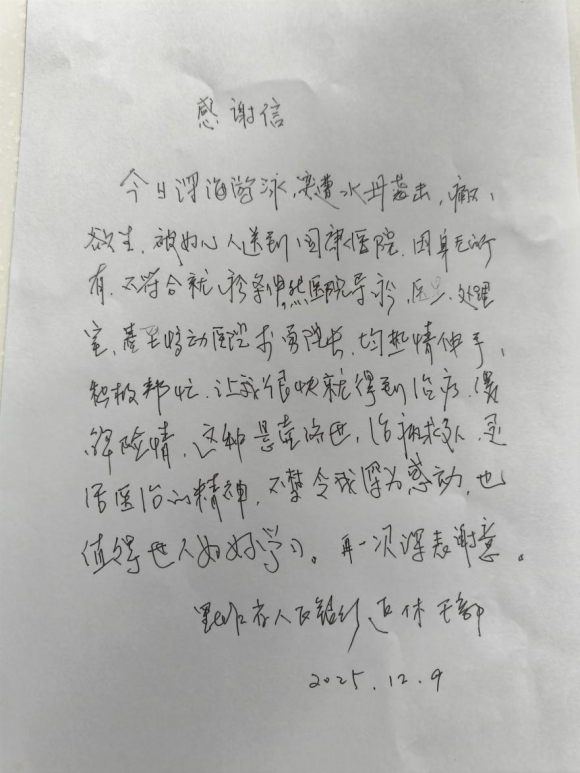 感谢信
今日深海游泳,突遭水母袭击,痛不
欲生,被好心人送到国康医院,因身无所
有,不符合就诊条件,然医院导诊,医生,处理
室,甚至惊动医院李勇院长,均热情伸手,
积极帮忙,让我很快就得到治疗,缓
解险情,这种悬壶济世,治病救人,灵
活医治的精神,不禁令我深为感动,也
值得世人好好学习。再一次深表谢意。
人民银行退休干部
2025.12.9